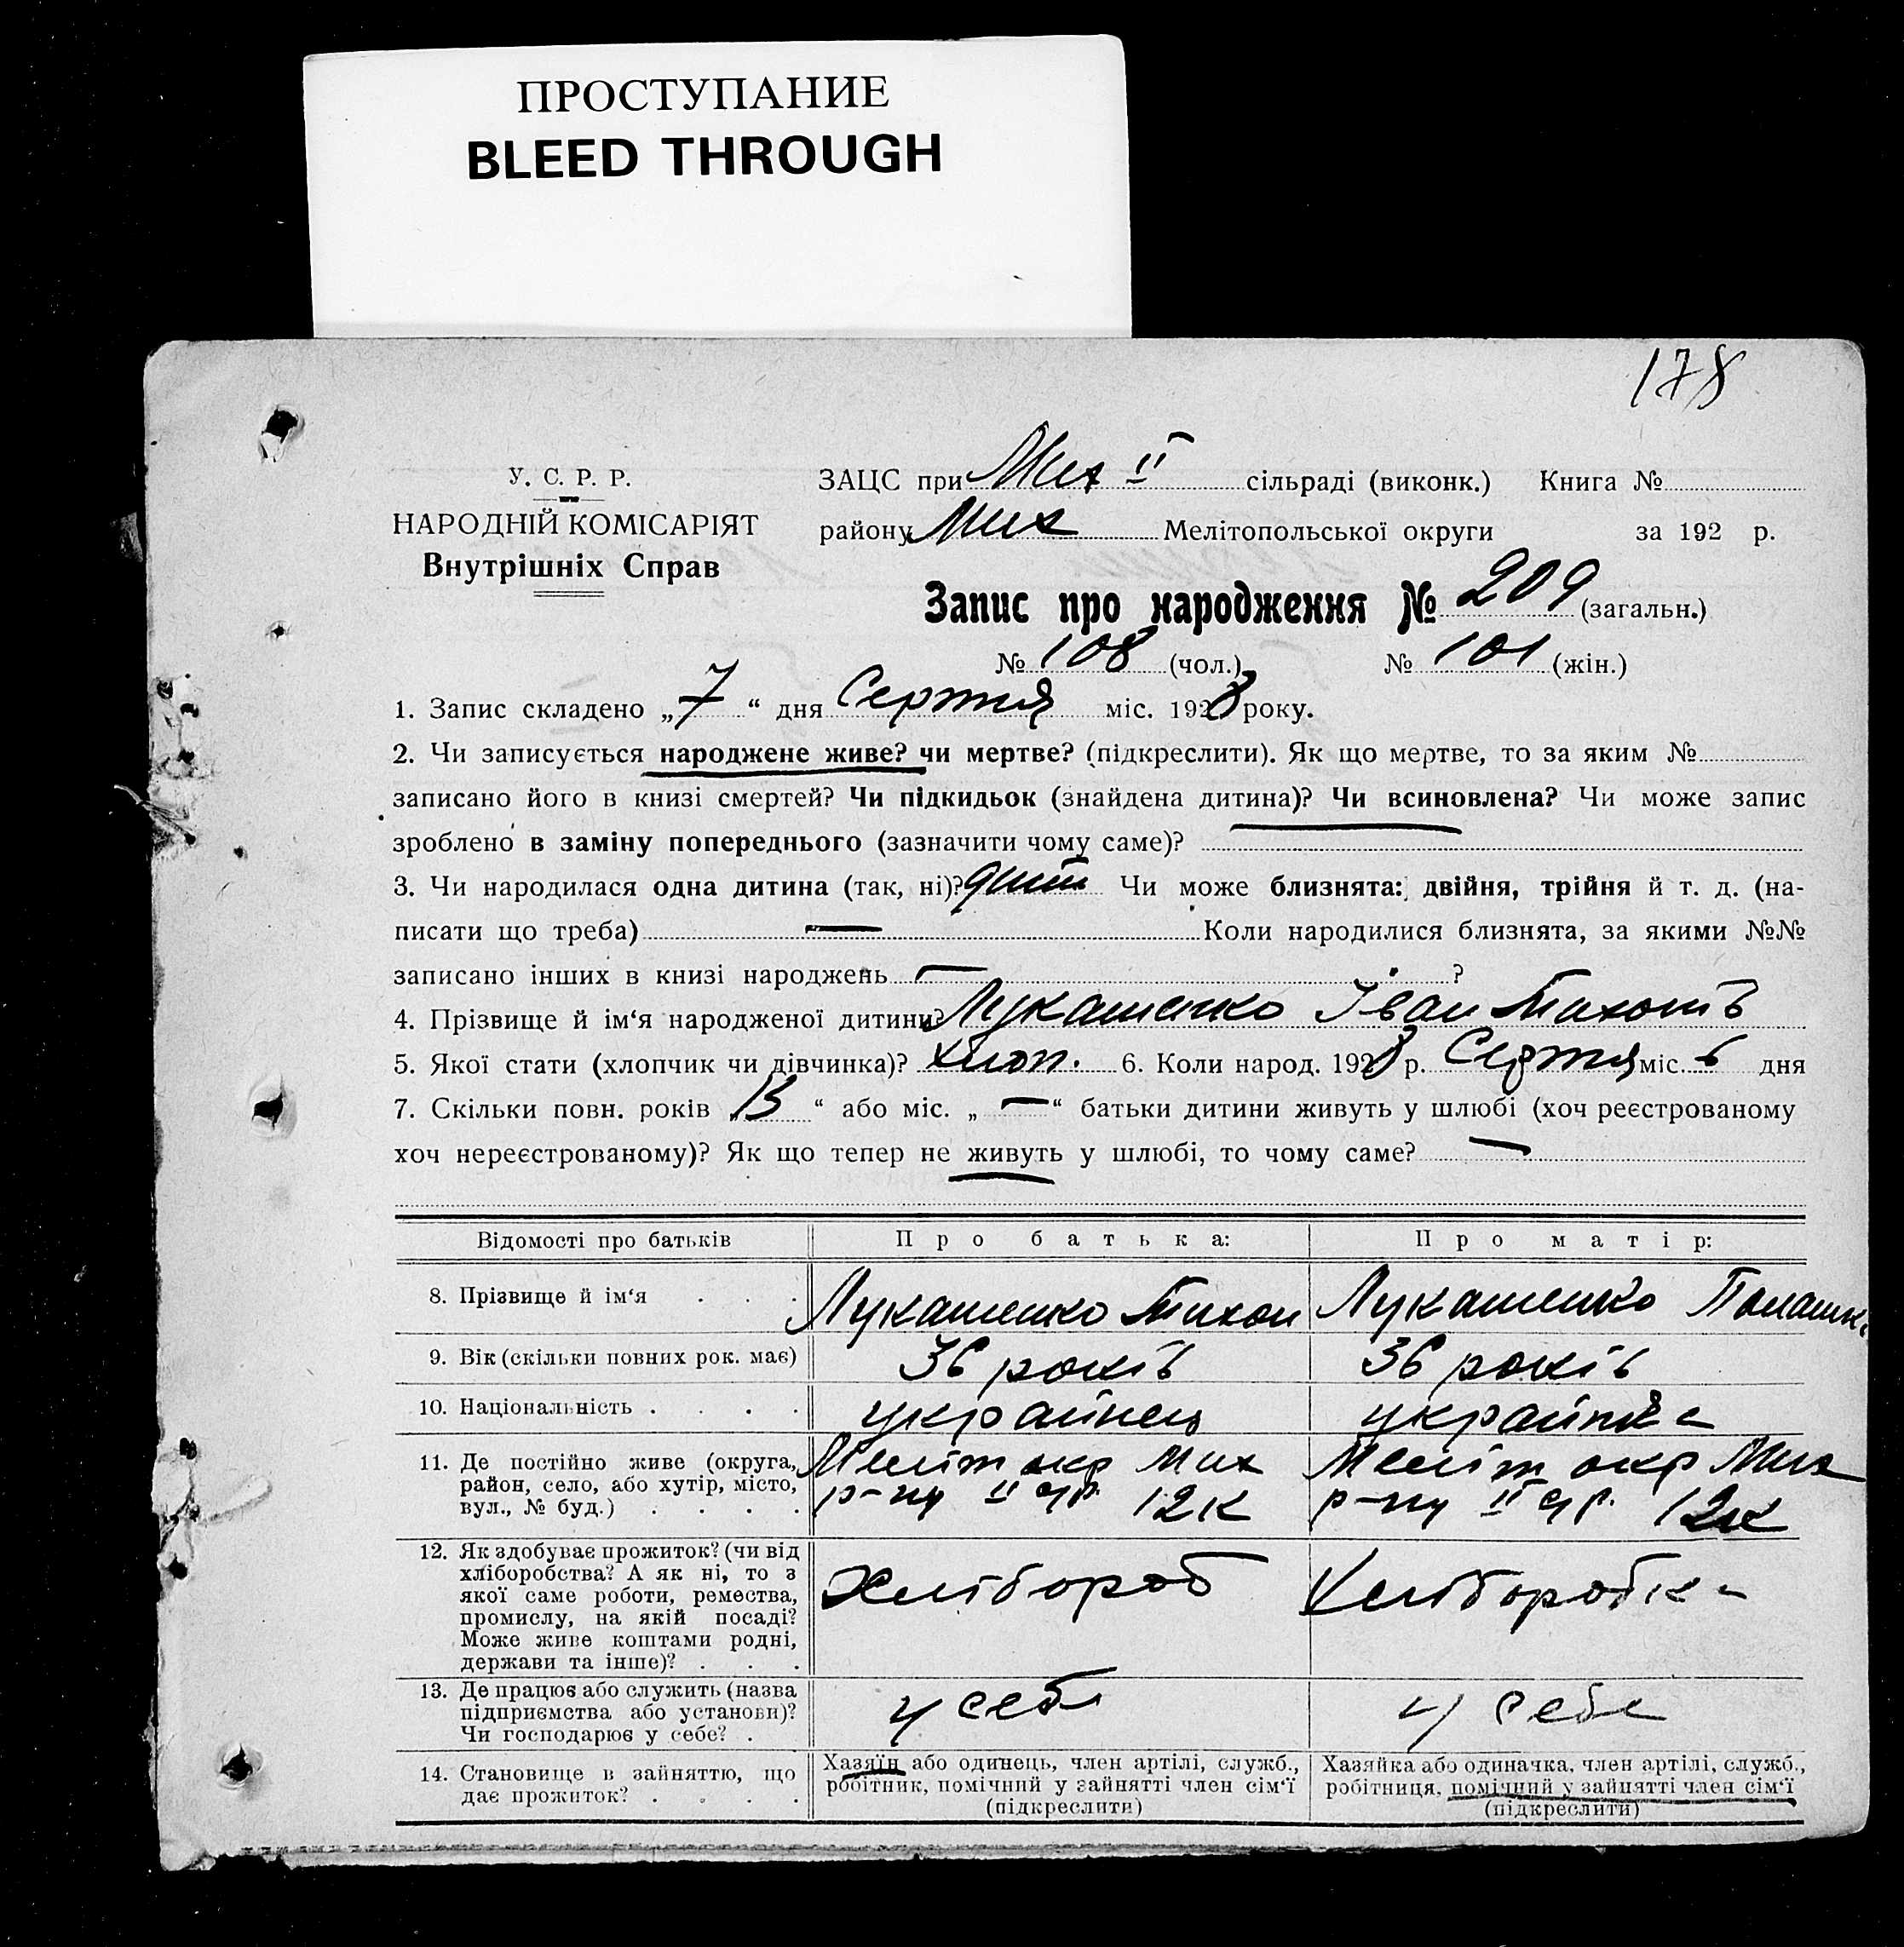 ПРОСТУПАНИЕ
BLEED THROUGH
178
У. С. Р. Р.
НАРОДНІЙ КОМІСАРІЯТ
Внутрішніх Справ
ЗАЦС при Мих II сільраді (виконк.) Книга №
району Мих Мелітопольської округи за 192 р.
Запис про народження № 209 (загальн.)
№ 108 (чол.) № 101 (жін.)
1. Запис складено „7“ дня Серпня міс. 1928 року.
2. Чи записується народжене живе? чи мертве? (підкреслити). Як що мертве, то за яким №
записано його в книзі смертей? Чи підкидьок (знайдена дитина)? Чи всиновлена? Чи може запис
зроблено в заміну попереднього (зазначити чому саме)?
3. Чи народилася одна дитина (так, ні)? Чи може близнята: двійня, трійня й т. д. (на-
писати що треба) — Коли народилися близнята, за якими №№
записано інших в книзі народжень — ?
4. Прізвище й ім‘я народженої дитини? Лукашенко Іван Тихонів
5. Якої стати (хлопчик чи дівчинка)? хлоп. 6. Коли народ. 1928 р. Серпня міс. 6 дня
7. Скільки повн. років „13“ або міс. „—“ батьки дитини живуть у шлюбі (хоч реєстрованому
хоч нереєстрованому)? Як що тепер не живуть у шлюбі, то чому саме? —
Відомості про батьків Про батька: Про матір:
8. Прізвище й ім‘я . . . Лукашенко Тихон Лукашенко
9. Вік (скільки повних рок. має) 36 років 36 років
10. Національність . . . . українець українка
11. Де постійно живе (округа,
район, село, або хутір, місто,
вул., № буд.) . . . .
Меліт окр Мих
р-ну II 12к
Меліт окр Мих
р-ну II 12к
12. Як здобуває прожиток? (чи від
хліборобства? А як ні, то з
якої саме роботи, ремества,
промислу, на якій посаді?
Може живе коштами родні,
держави та інше)? . . .
Хлібороб Хліборобка
13. Де працює або служить (назва
підприємства або установи)?
Чи господарює у себе? .
у себе у себе
14. Становище в зайняттю, що
дає прожиток? . . . .
Хазяїн або одинець, член артілі, служб.,
робітник, помічний у зайнятті член сім‘ї
(підкреслити)
Хазяйка або одиначка, член артілі, служб.,
робітниця, помічний у зайнятті член сім‘ї
(підкреслити)